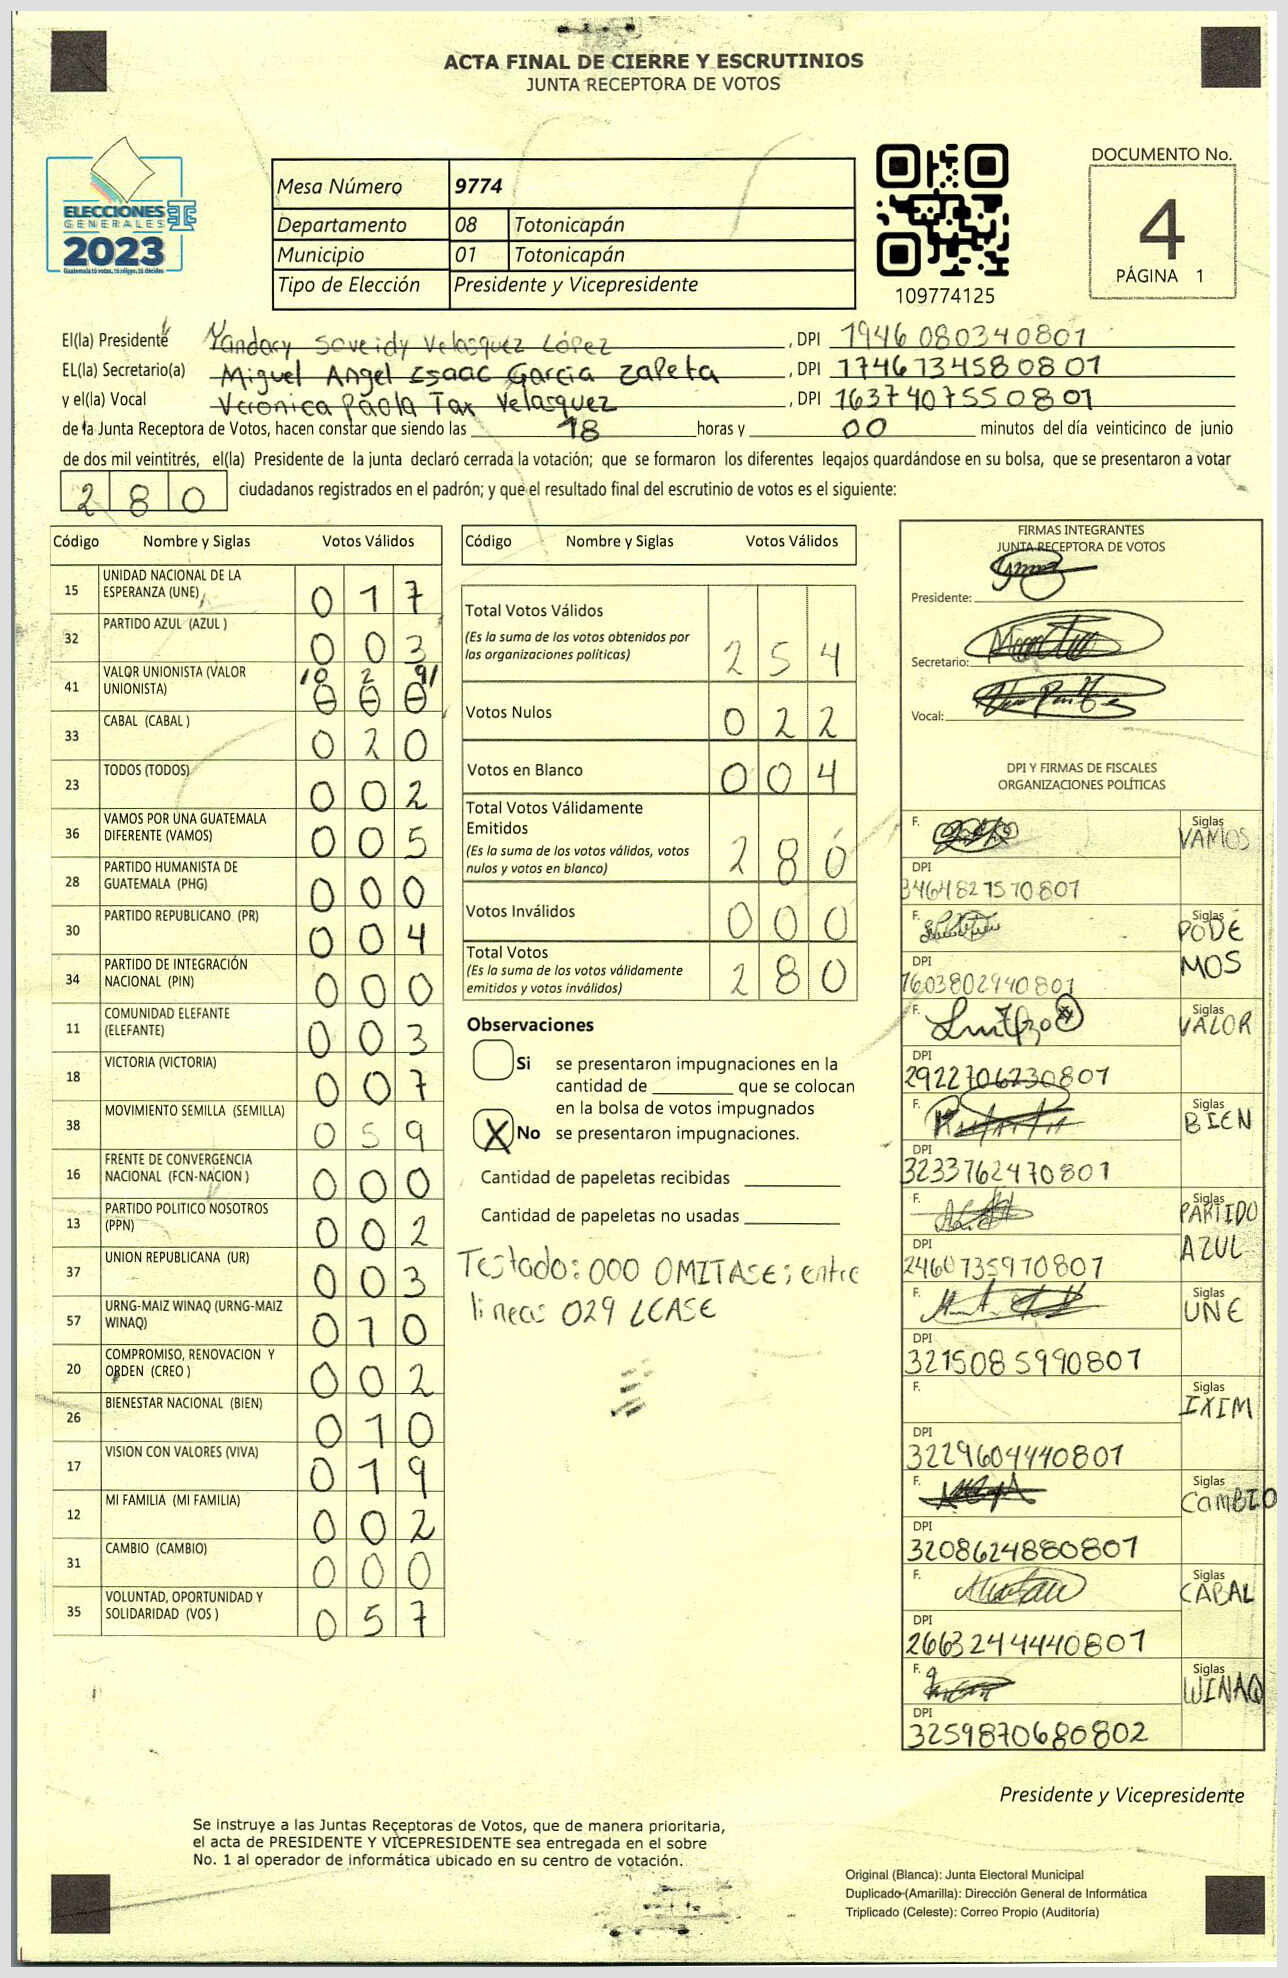 ACTA FINAL DE CIERRE Y ESCRUTINIOS
JUNTA RECEPTORA DE VOTOS
ELECCIONES
GENERALES
2023
Guatemala tú votas, tú eliges, tú decides
Mesa Número 9774
Departamento 08 Totonicapán
Municipio 01 Totonicapán
Tipo de Elección Presidente y Vicepresidente
109774125
DOCUMENTO No.
4
PÁGINA 1
El(la) Presidente Yandary Soveidy Velasquez López, DPI 1946 08034 0801
EL(la) Secretario(a) Miguel Angel Isaac Garcia Zapeta, DPI 1746 73458 0801
y el(la) Vocal Verónica Paola Tax Velasquez, DPI 1637 40755 0801
de la Junta Receptora de Votos, hacen constar que siendo las 18 horas y 00 minutos del día veinticinco de junio
de dos mil veintitrés, el(la) Presidente de la junta declaró cerrada la votación; que se formaron los diferentes legajos guardándose en su bolsa, que se presentaron a votar
280 ciudadanos registrados en el padrón; y que el resultado final del escrutinio de votos es el siguiente:
Código Nombre y Siglas Votos Válidos
15 UNIDAD NACIONAL DE LA ESPERANZA (UNE) 017
32 PARTIDO AZUL (AZUL ) 003
41 VALOR UNIONISTA (VALOR UNIONISTA) /0 2 9/ 000
33 CABAL (CABAL ) 020
23 TODOS (TODOS) 002
36 VAMOS POR UNA GUATEMALA DIFERENTE (VAMOS) 005
28 PARTIDO HUMANISTA DE GUATEMALA (PHG) 000
30 PARTIDO REPUBLICANO (PR) 004
34 PARTIDO DE INTEGRACIÓN NACIONAL (PIN) 000
11 COMUNIDAD ELEFANTE (ELEFANTE) 003
18 VICTORIA (VICTORIA) 007
38 MOVIMIENTO SEMILLA (SEMILLA) 059
16 FRENTE DE CONVERGENCIA NACIONAL (FCN-NACION ) 000
13 PARTIDO POLITICO NOSOTROS (PPN) 002
37 UNION REPUBLICANA (UR) 003
57 URNG-MAIZ WINAQ (URNG-MAIZ WINAQ) 010
20 COMPROMISO, RENOVACION Y ORDEN (CREO ) 002
26 BIENESTAR NACIONAL (BIEN) 010
17 VISION CON VALORES (VIVA) 019
12 MI FAMILIA (MI FAMILIA) 002
31 CAMBIO (CAMBIO) 000
35 VOLUNTAD, OPORTUNIDAD Y SOLIDARIDAD (VOS ) 057
Código Nombre y Siglas Votos Válidos
Total Votos Válidos 254
(Es la suma de los votos obtenidos por
las organizaciones políticas)
Votos Nulos 022
Votos en Blanco 004
Total Votos Válidamente
Emitidos 280
(Es la suma de los votos válidos, votos
nulos y votos en blanco)
Votos Inválidos 000
Total Votos 280
(Es la suma de los votos válidamente
emitidos y votos inválidos)
Observaciones
Si se presentaron impugnaciones en la
cantidad de ________ que se colocan
en la bolsa de votos impugnados
X No se presentaron impugnaciones.
Cantidad de papeletas recibidas
Cantidad de papeletas no usadas
Testado: 000 OMITASE; entre
lineas 029 LEASE
FIRMAS INTEGRANTES
JUNTA RECEPTORA DE VOTOS
Presidente:
Secretario:
Vocal:
DPI Y FIRMAS DE FISCALES
ORGANIZACIONES POLÍTICAS
F. Siglas VAMOS
DPI 3464827570801
F. Siglas PODEMOS
DPI 1603802940801
F. Siglas VALOR
DPI 2922706230801
F. Siglas BIEN
DPI 3233762470801
F. Siglas PARTIDO AZUL
DPI 2460735970801
F. Siglas UNE
DPI 3215085990801
F. Siglas IXIM
DPI 3229604440801
F. Siglas CAMBIO
DPI 3208624880801
F. Siglas CABAL
DPI 2663244440801
F. Siglas WINAQ
DPI 3259870680802
Presidente y Vicepresidente
Se instruye a las Juntas Receptoras de Votos, que de manera prioritaria,
el acta de PRESIDENTE Y VICEPRESIDENTE sea entregada en el sobre
No. 1 al operador de informática ubicado en su centro de votación.
Original (Blanca): Junta Electoral Municipal
Duplicado (Amarilla): Dirección General de Informática
Triplicado (Celeste): Correo Propio (Auditoría)